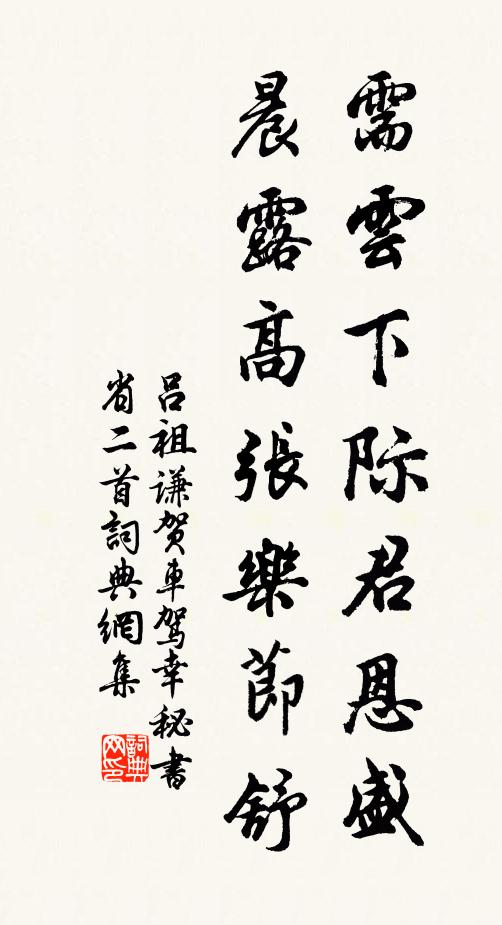 需雲下际君恩盛
晨露高張樂節舒
呂祖謙賀車駕幸秘書
省二首詞典網集
詞典
网印